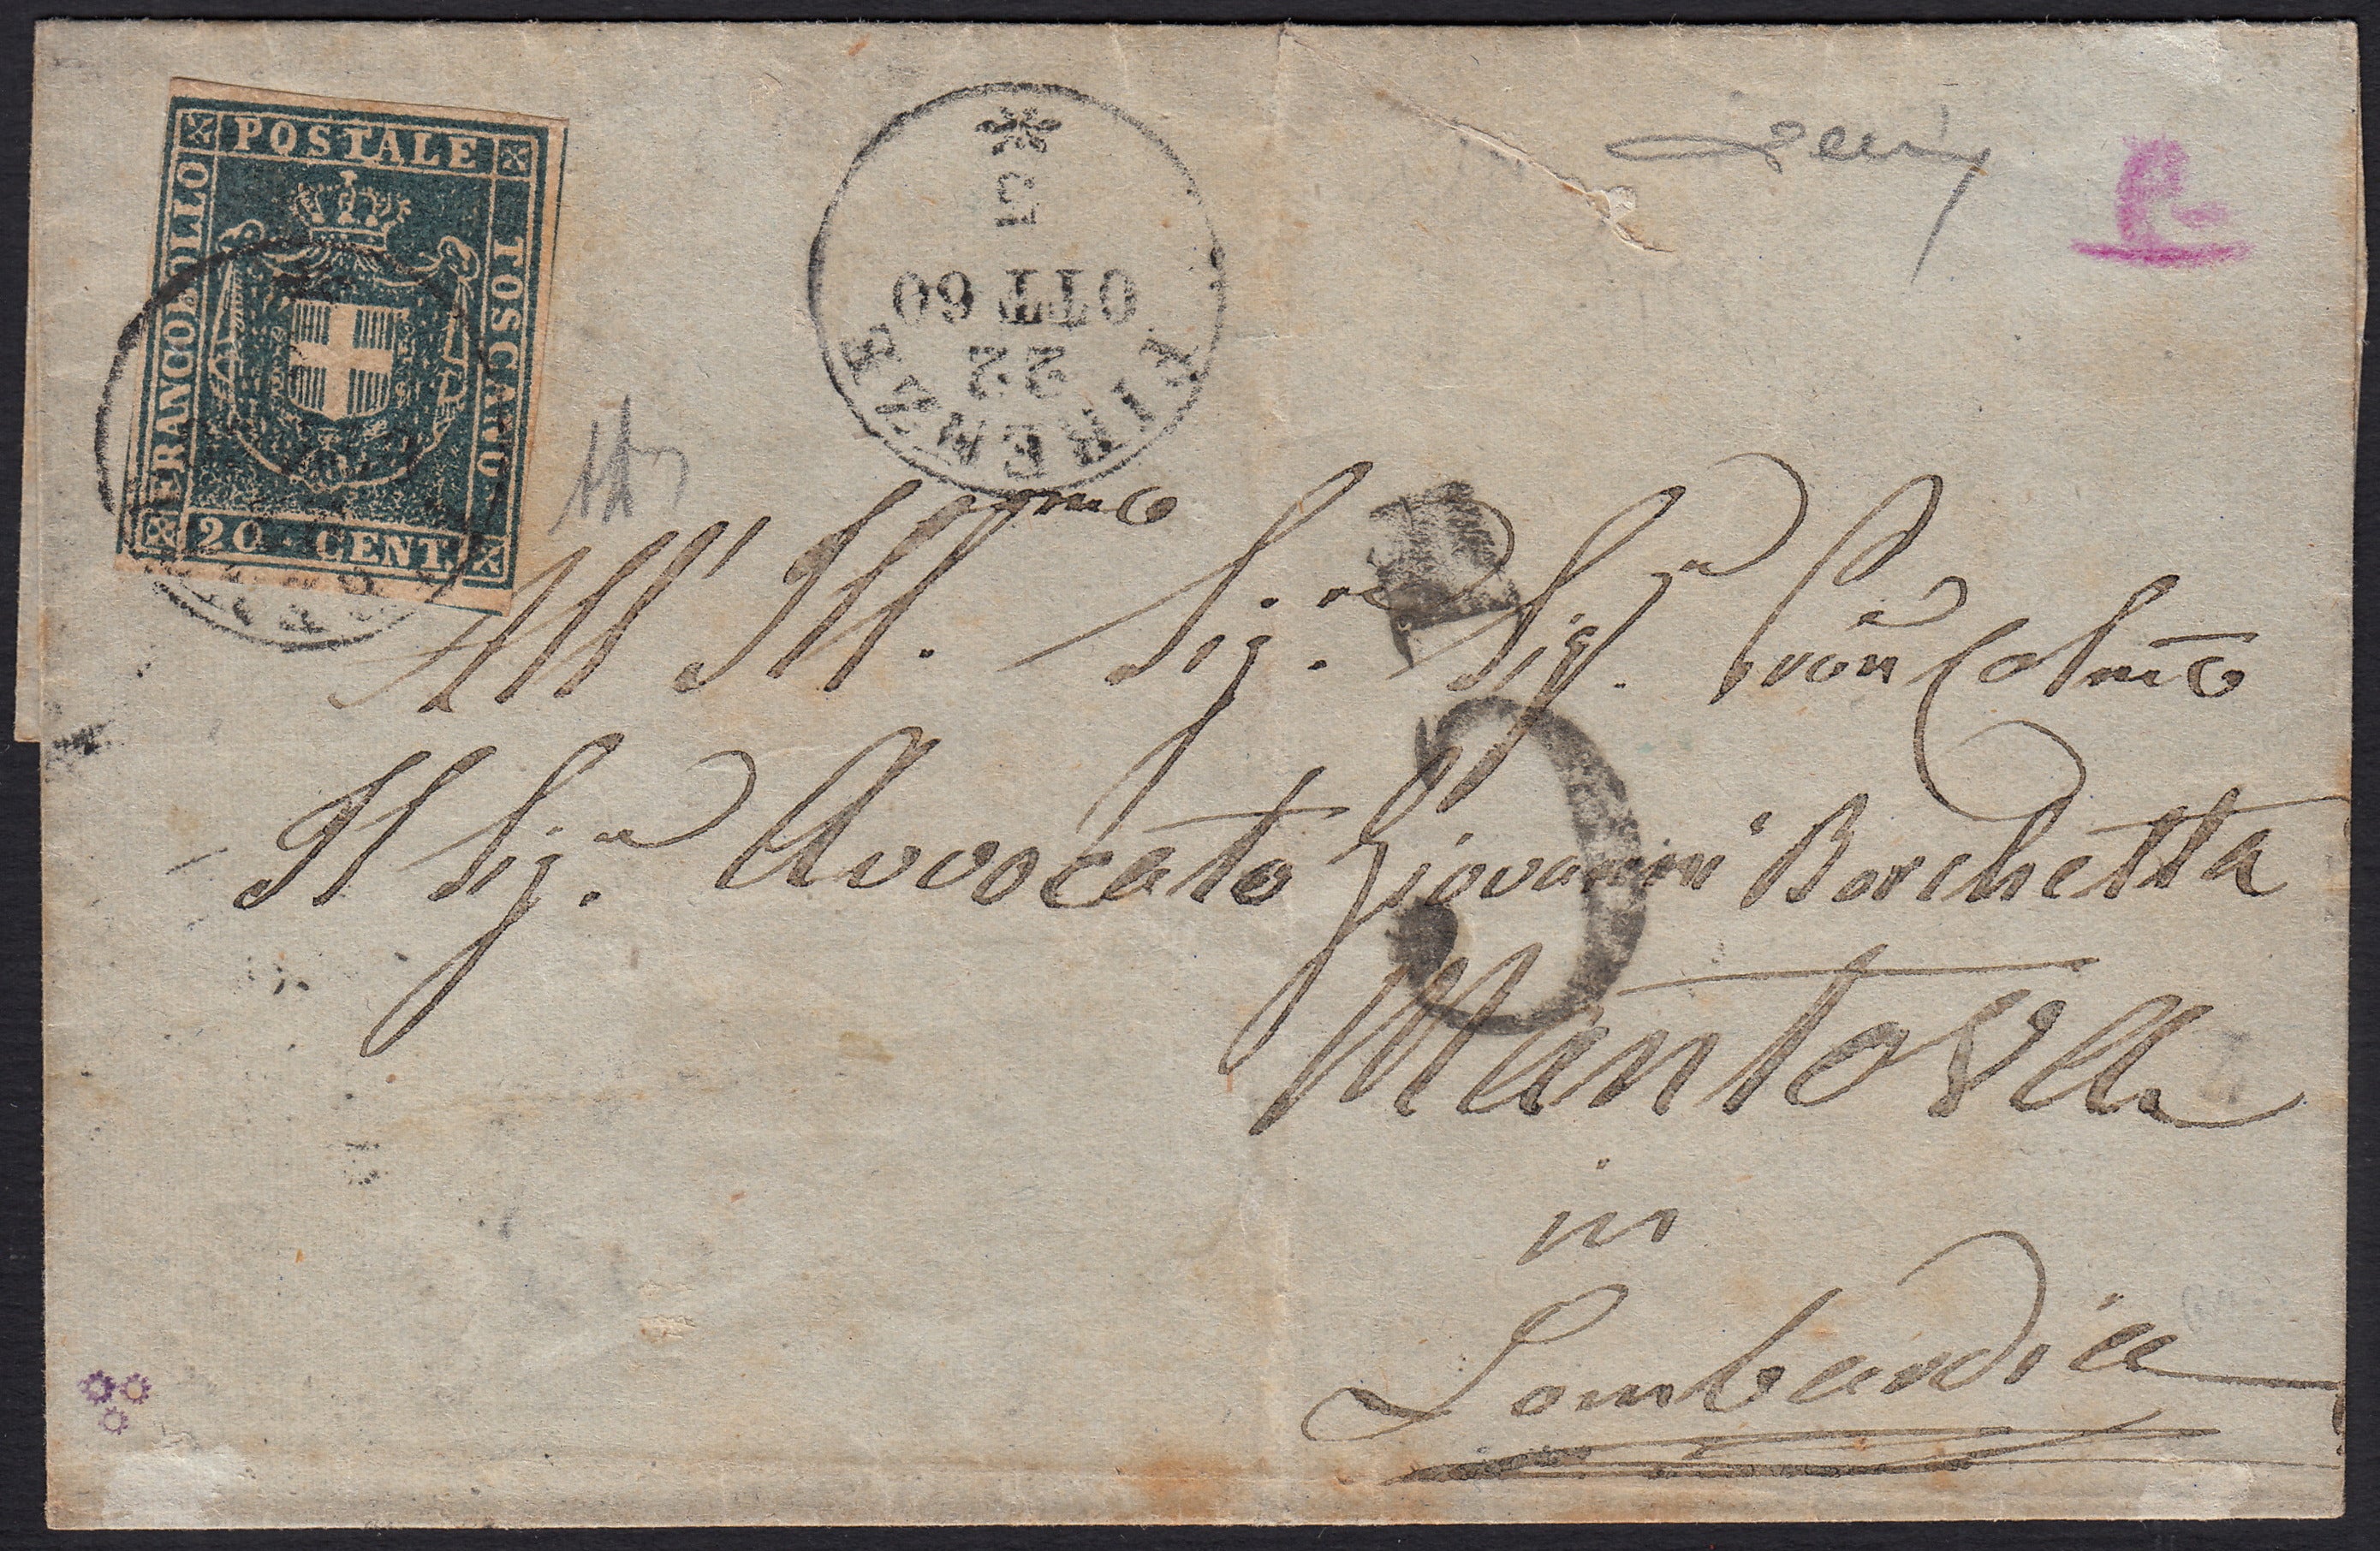 POSTALE
FRANCOBOLLO
TOSCANO
20 CENT.
FIRENZE
22
OTT 60
5
All' Ill.mo Sig.r Sig.r Pron Colmo
Il Sig.r Avvocato Giovanni Borchetta
Mantova
in
Lombardia